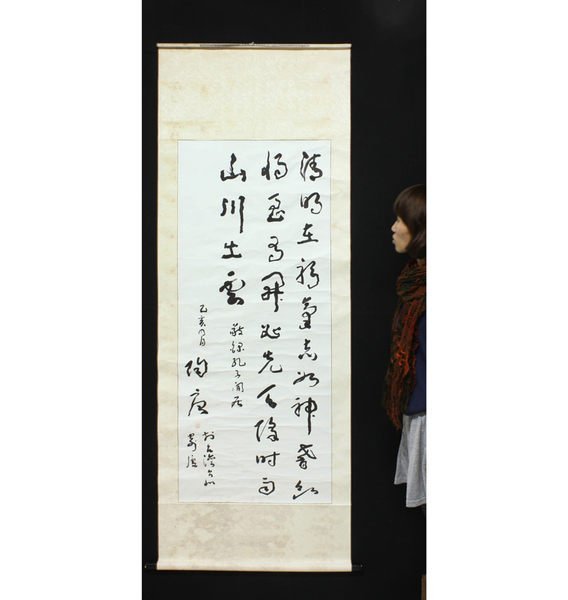 清明在躬氣志如神耆欲
將至有開必先天降時雨
山川出雲
敬錄孔子閒居
乙亥 月
陶
於台灣台北